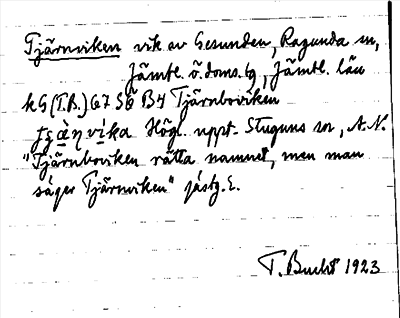 Tjärnviken vik av Gesunden, Ragunda sn,
Jämtl. ö. doms. lg, Jämtl. län
kG (T.B.) 67 SÖ B4 Tjärnboviken
Högl. uppt. Stuguns sn, A.N.
"Tjärnboviken rätta namnet, men man
säger Tjärnviken" jästg. E.
T. Bucht 1923